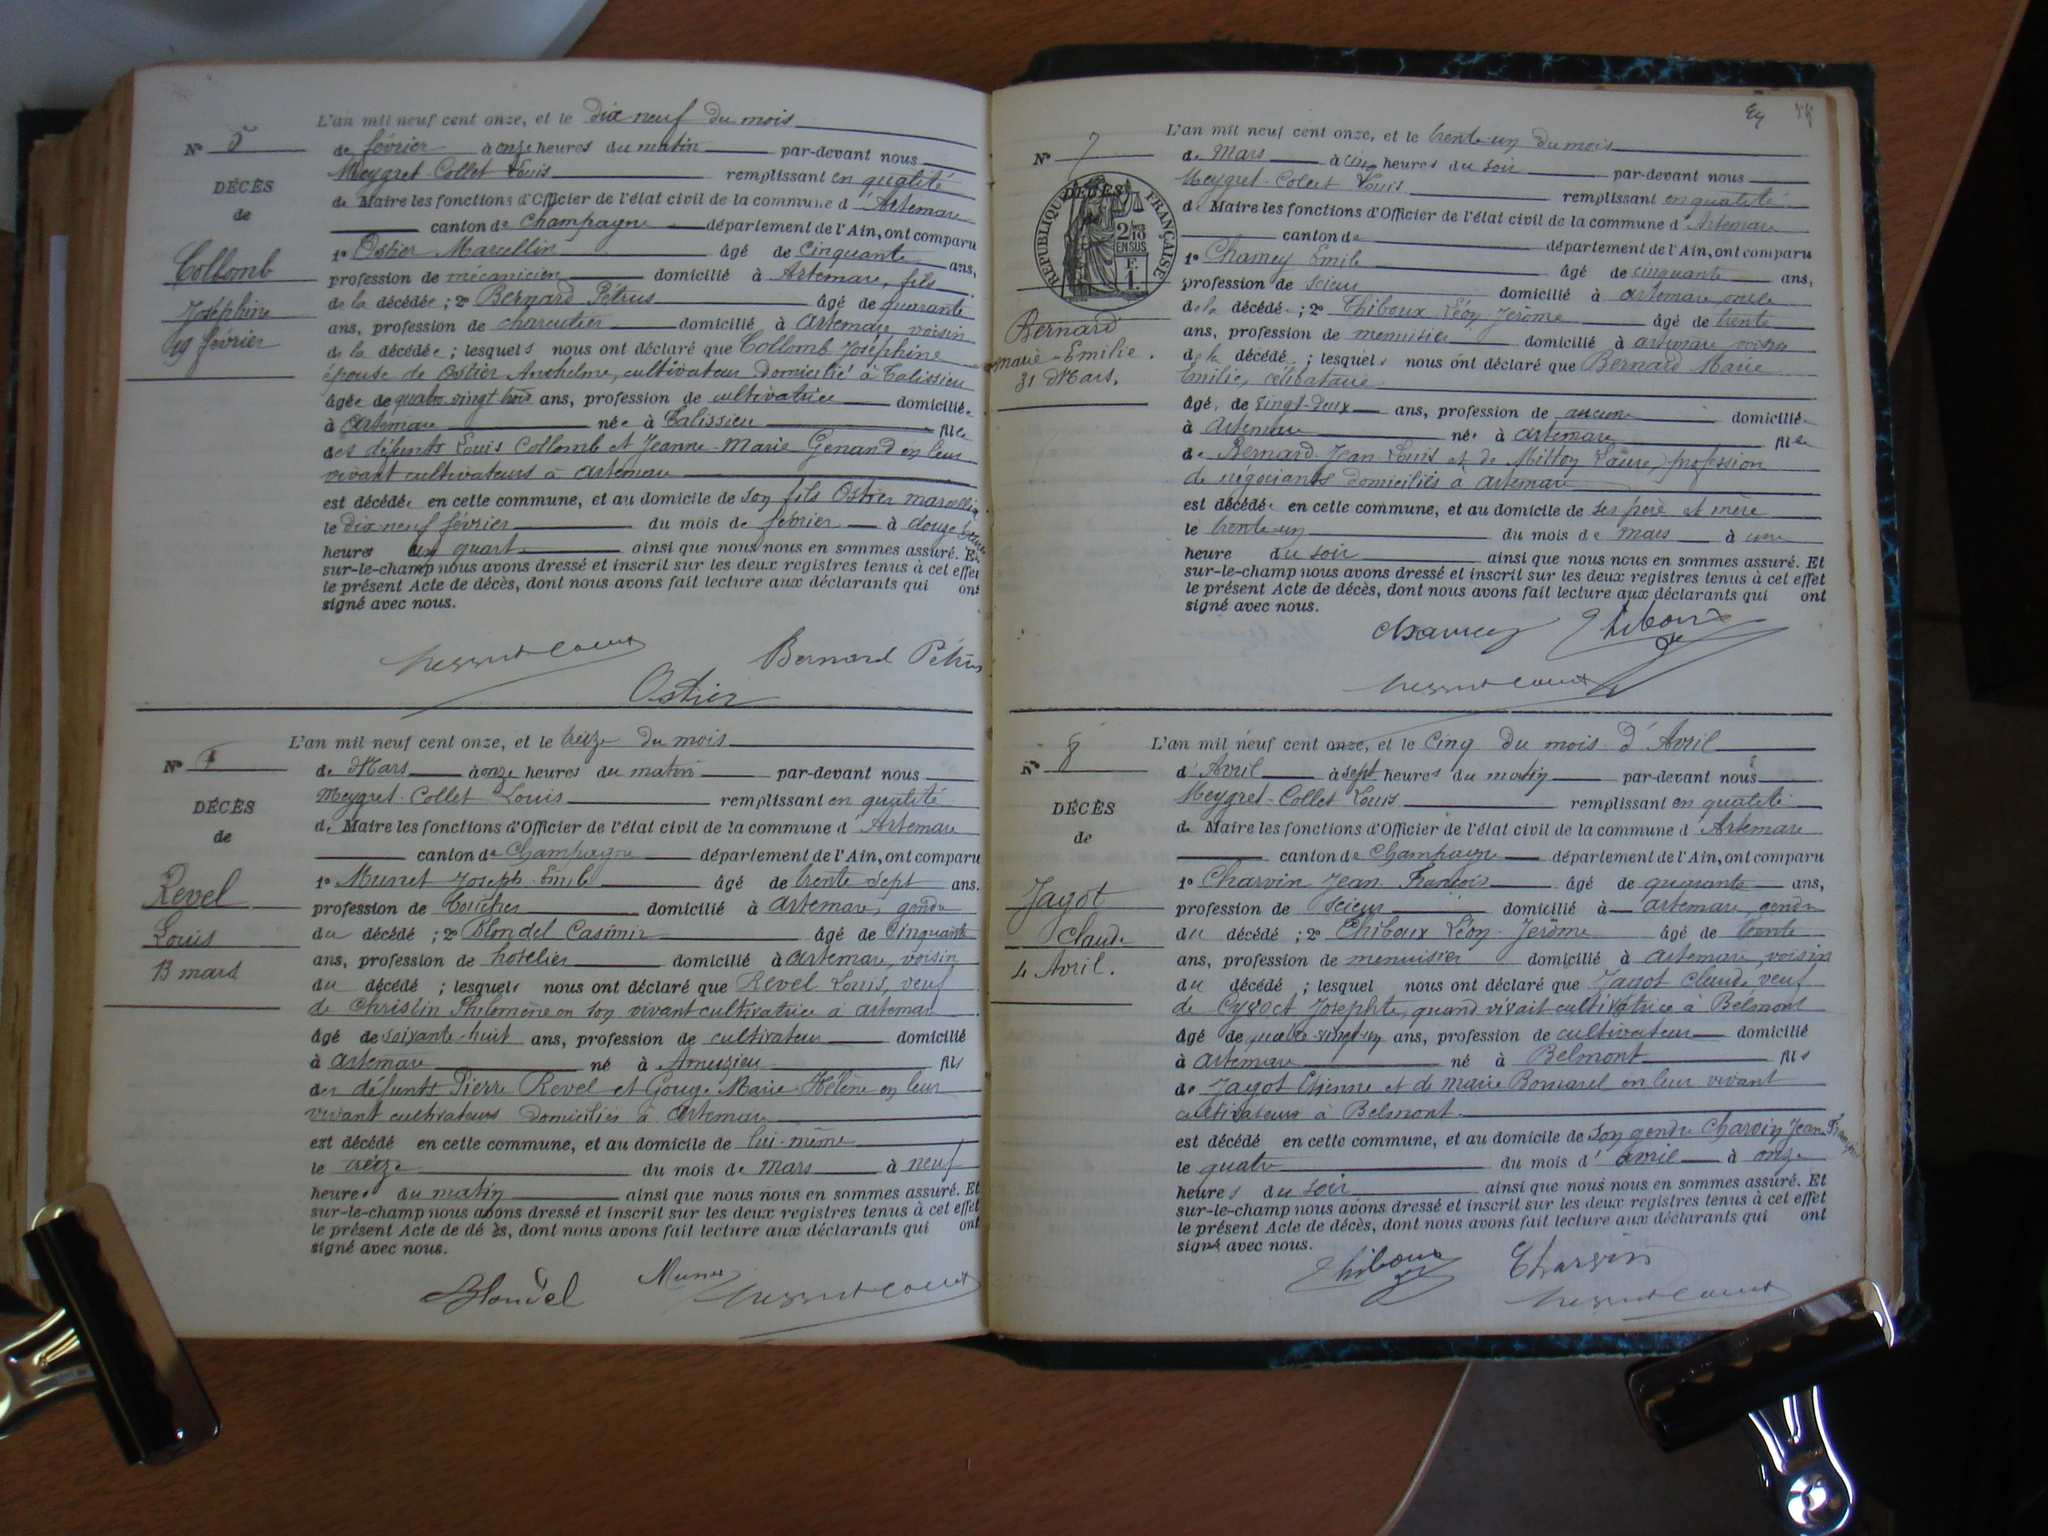 L'an mil neuf cent onze, et le dix neuf du mois
N° 5
de février à onze heures du matin par-devant nous
Meygret-Collet Louis remplissant en qualité
DÉCÈS
de Maire les fonctions d'Officier de l'état civil de la commune d'Artemare
de
canton de Champagne département de l'Ain, ont comparu
1° Ostier Marcellin âgé de Cinquante ans,
Collomb
profession de mécanicien domicilié à Artemare, fils
Joséphine
de la décédée ; 2° Bernard Pétrus âgé de quarante
19 février
ans, profession de charcutier domicilié à Artemare, voisin
de la décédée ; lesquels nous ont déclaré que Collomb Joséphine
épouse de Ostier Anthelme, cultivateur domicilié à Talissieu
âgée de quatre vingt trois ans, profession de cultivatrice domiciliée
à Artemare née à Talissieu fille
des défunts Louis Collomb et Jeanne-Marie Genand en leur
vivant cultivateurs à Artemare
est décédée en cette commune, et au domicile de son fils Ostier Marcellin
le dix neuf février du mois de février à douze heures
heures un quart ainsi que nous nous en sommes assuré. Et
sur-le-champ nous avons dressé et inscrit sur les deux registres tenus à cet effet
le présent Acte de décès, dont nous avons fait lecture aux déclarants qui ont
signé avec nous.
Bernard Pétrus
Ostier
L'an mil neuf cent onze, et le treize du mois
N°
de Mars à onze heures du matin par-devant nous
Meygret-Collet Louis remplissant en qualité
DÉCÈS
de Maire les fonctions d'Officier de l'état civil de la commune d'Artemare
de
canton de Champagne département de l'Ain, ont comparu
1° Munet Joseph-Emile âgé de trente sept ans.
Revel
profession de boucher domicilié à Artemare, gendre
Louis
du décédé ; 2° Blondel Casimir âgé de Cinquante
13 mars
ans, profession de hotelier domicilié à Artemare, voisin
du décédé ; lesquels nous ont déclaré que Revel Louis, veuf
de Christin Philomène en son vivant cultivatrice à Artemare
âgé de soixante-huit ans, profession de cultivateur domicilié
à Artemare né à Ameyzieu fils
des défunts Pierre Revel et Gouge Marie-Hélène en leur
vivant cultivateurs domiciliés à Artemare
est décédé en cette commune, et au domicile de lui-même
le treize du mois de mars à neuf
heures du matin ainsi que nous nous en sommes assuré. Et
sur-le-champ nous avons dressé et inscrit sur les deux registres tenus à cet effet
le présent Acte de décès, dont nous avons fait lecture aux déclarants qui ont
signé avec nous.
Blondel Munet
L'an mil neuf cent onze, et le trente-un du mois
N° 7
de Mars à cinq heures du soir par-devant nous
Meygret-Collet Louis remplissant en qualité
DÉCÈS
RÉPUBLIQUE FRANÇAISE
2/10 EN SUS
F. 1
de Maire les fonctions d'Officier de l'état civil de la commune d'Artemare
canton de département de l'Ain, ont comparu
1° Chamey Emile âgé de cinquante ans,
profession de scieur domicilié à Artemare, oncle
Bernard
de la décédée ; 2° Thiboux Léon Jérôme âgé de trente
Marie-Emilie.
ans, profession de menuisier domicilié à Artemare voisin
31 Mars.
de la décédé ; lesquels nous ont déclaré que Bernard Marie
Emilie, célibataire
âgée de vingt-deux ans, profession de aucune domiciliée
à Artemare née à Artemare fille
de Bernard Jean Louis et de Milloz Laure, profession
de négociants domiciliés à Artemare
est décédée en cette commune, et au domicile de ses père et mère
le trente-un du mois de mars à une
heure du soir ainsi que nous nous en sommes assuré. Et
sur-le-champ nous avons dressé et inscrit sur les deux registres tenus à cet effet
le présent Acte de décès, dont nous avons fait lecture aux déclarants qui ont
signé avec nous.
Chamey Thiboux
L'an mil neuf cent onze, et le Cinq du mois d'Avril
N° 8
d'Avril à sept heures du matin par-devant nous
Meygret-Collet Louis remplissant en qualité
DÉCÈS
de Maire les fonctions d'Officier de l'état civil de la commune d'Artemare
de
canton de Champagne département de l'Ain, ont comparu
1° Charvin Jean François âgé de quarante ans,
Jagot
profession de scieur domicilié à Artemare, gendre
Claude
du décédé ; 2° Thiboux Léon-Jérôme âgé de trente
4 Avril.
ans, profession de menuisier domicilié à Artemare, voisin
du décédé ; lesquel nous ont déclaré que Jagot Claude, veuf
de Josephte, quand vivait cultivatrice à Belmont
âgé de quatre-vingt-un ans, profession de cultivateur domicilié
à Artemare né à Belmont fils
de Jagot Etienne et de Marie en leur vivant
cultivateurs à Belmont.
est décédé en cette commune, et au domicile de son gendre Charvin Jean-François
le quatre du mois d'avril à onze
heures du soir ainsi que nous nous en sommes assuré. Et
sur-le-champ nous avons dressé et inscrit sur les deux registres tenus à cet effet
le présent Acte de décès, dont nous avons fait lecture aux déclarants qui ont
signé avec nous.
Thiboux Charvin